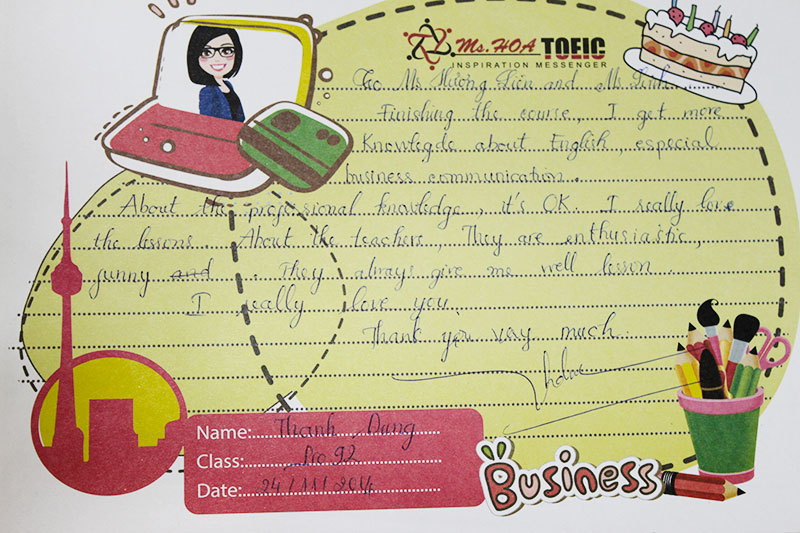 Ms. HOA TOEIC
INSPIRATION MESSENGER
To Ms Hương Tiên and Mr
Finishing the course, I get more
Knowlegde about English, especial
business communication.
About the professional knowledge, it's OK. I really love
the lessons. About the teachers, They are enthusiastic,
funny and . They always give me well lesson.
I really love you.
Thank you very much.
Name: Thanh Dung
Class: Pro 92
Date: 24/11/2014
Business